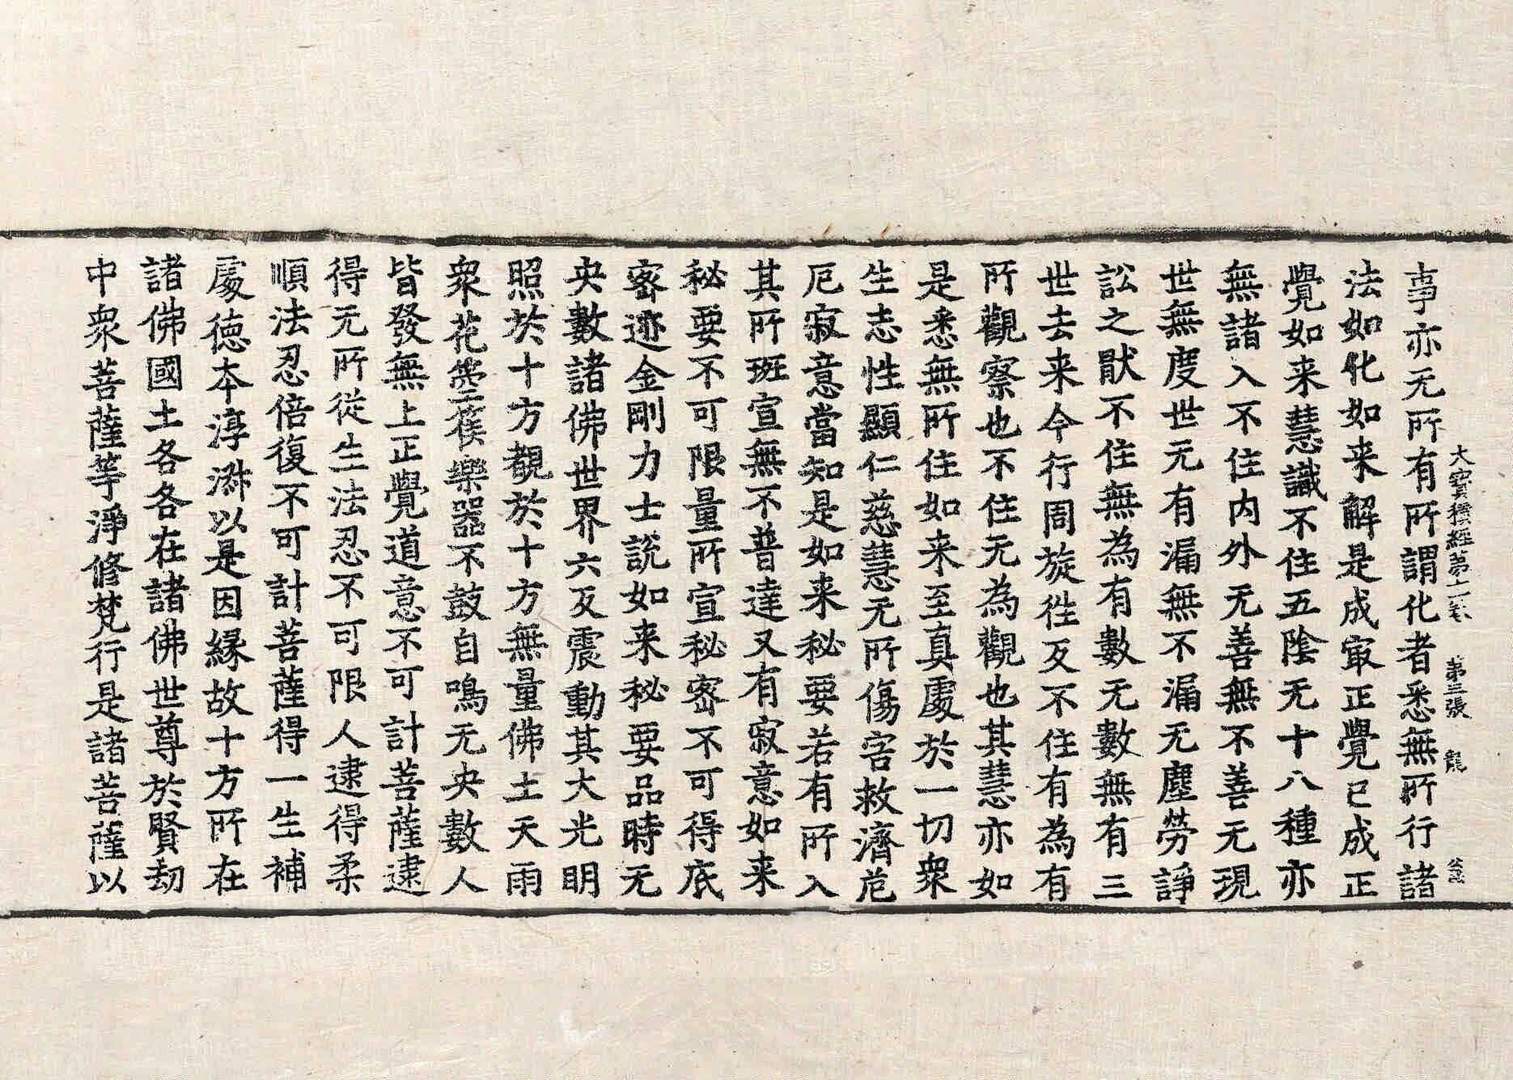 大寶積經第十一卷　第三張　龍
事亦无所有所謂化者悉無所行諸
法如化如来解是成㝡正覺已成正
覺如来慧識不住五陰无十八種亦
無諸入不住内外无善無不善无現
世無度世无有漏無不漏无塵勞諍
訟之猒不住無為有數无數無有三
世去来今行周旋徃反不住有為有
所觀察也不住无為觀也其慧亦如
是悉無所住如来至真處於一切衆
生志性顯仁慈慧无所傷害救濟危
厄寂意當知是如来秘要若有所入
其所班宣無不普達又有寂意如来
秘要不可限量所宣秘密不可得底
密迹金剛力士說如来秘要品時无
央數諸佛世界六反震動其大光明
照於十方覩於十方無量佛土天雨
衆花箜篌樂器不鼓自鳴无央數人
皆發無上正覺道意不可計菩薩逮
得无所從生法忍不可限人逮得柔
順法忍倍復不可計菩薩得一生補
處徳本淳淑以是因縁故十方所在
諸佛國土各各在諸佛世尊於賢劫
中衆菩薩等淨修梵行是諸菩薩以